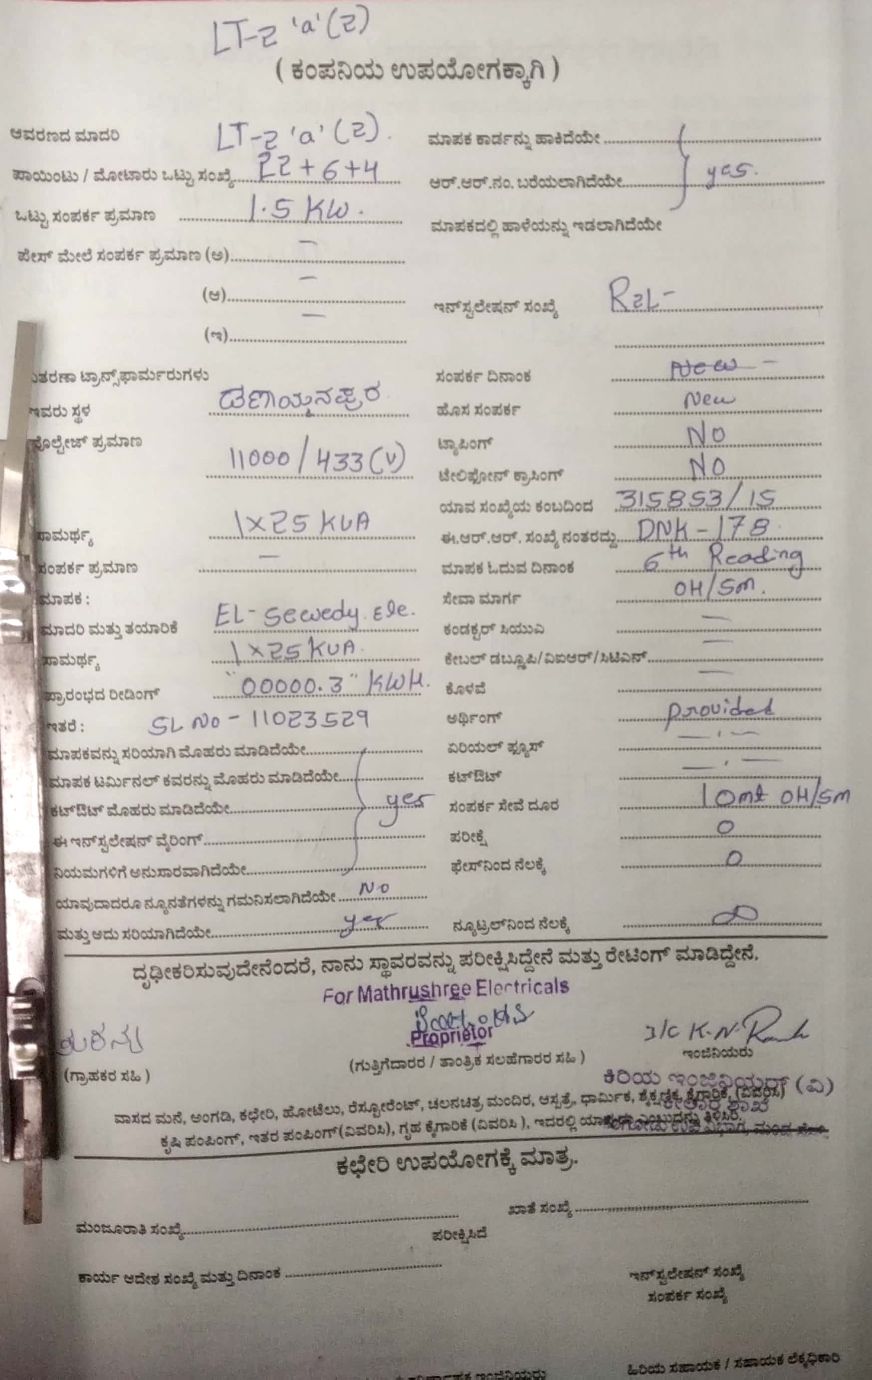 LT-2 'a' (2)
( ಕಂಪನಿಯ ಉಪಯೋಗಕ್ಕಾಗಿ )
ಆವರಣದ ಮಾದರಿ LT-2 'a' (2). ಮಾಪಕ ಕಾರ್ಡನ್ನು ಹಾಕಿದೆಯೇ
ಪಾಯಿಂಟು / ಮೋಟಾರು ಒಟ್ಟು ಸಂಖ್ಯೆ 22+6+4 ಆರ್.ಆರ್.ನಂ. ಬರೆಯಲಾಗಿದೆಯೇ yes.
ಒಟ್ಟು ಸಂಪರ್ಕ ಪ್ರಮಾಣ 1.5 KW. ಮಾಪಕದಲ್ಲಿ ಹಾಳೆಯನ್ನು ಇಡಲಾಗಿದೆಯೇ
ಫೇಸ್ ಮೇಲೆ ಸಂಪರ್ಕ ಪ್ರಮಾಣ (ಅ) —
(ಆ) — ಇನ್‌ಸ್ಟಲೇಷನ್ ಸಂಖ್ಯೆ R2L-
(ಇ) —
ವಿತರಣಾ ಟ್ರಾನ್ಸ್‌ಫಾರ್ಮರುಗಳು ಸಂಪರ್ಕ ದಿನಾಂಕ New -
ಇವರು ಸ್ಥಳ ಹೊಸ ಸಂಪರ್ಕ New
ವೋಲ್ಟೇಜ್ ಪ್ರಮಾಣ 11000 / 433 (V) ಟ್ಯಾಪಿಂಗ್ NO
ಟೇಲಿಫೋನ್ ಕ್ರಾಸಿಂಗ್ NO
ಯಾವ ಸಂಖ್ಯೆಯ ಕಂಬದಿಂದ 315853/15
ಸಾಮರ್ಥ್ಯ 1X25 KVA ಈ.ಆರ್.ಆರ್. ಸಂಖ್ಯೆ ನಂತರದ್ದು DNK-178
ಸಂಪರ್ಕ ಪ್ರಮಾಣ — ಮಾಪಕ ಓದುವ ದಿನಾಂಕ 6th Reading
ಮಾಪಕ : ಸೇವಾ ಮಾರ್ಗ OH/SM.
ಮಾದರಿ ಮತ್ತು ತಯಾರಿಕೆ EL-Sewedy. Ele. ಕಂಡಕ್ಟರ್ ಸಿಯುಎ —
ಸಾಮರ್ಥ್ಯ 1X25 KVA. ಕೇಬಲ್ ಡಬ್ಲೂಪಿ/ವಿಐಆರ್/ಸಿಟಿಎಸ್ —
ಪ್ರಾರಂಭದ ರೀಡಿಂಗ್ "00000.3" KWH. ಕೊಳವೆ —
ಇತರೆ : SL NO - 11023529 ಅರ್ಥಿಂಗ್ provided
ಮಾಪಕವನ್ನು ಸರಿಯಾಗಿ ಮೊಹರು ಮಾಡಿದೆಯೇ ಏರಿಯಲ್ ಫ್ಯೂಸ್ —·—
ಮಾಪಕ ಟರ್ಮಿನಲ್ ಕವರನ್ನು ಮೊಹರು ಮಾಡಿದೆಯೇ ಕಟ್‌ಔಟ್ —·—
ಕಟ್‌ಔಟ್ ಮೊಹರು ಮಾಡಿದೆಯೇ yes ಸಂಪರ್ಕ ಸೇವೆ ದೂರ 10mt OH/SM
ಈ ಇನ್‌ಸ್ಟಲೇಷನ್ ವೈರಿಂಗ್ ಪರೀಕ್ಷೆ 0
ನಿಯಮಗಳಿಗೆ ಅನುಸಾರವಾಗಿದೆಯೇ ಫೇಸ್‌ನಿಂದ ನೆಲಕ್ಕೆ 0
ಯಾವುದಾದರೂ ನ್ಯೂನತೆಗಳನ್ನು ಗಮನಿಸಲಾಗಿದೆಯೇ No
ಮತ್ತು ಅದು ಸರಿಯಾಗಿದೆಯೇ yes ನ್ಯೂಟ್ರಲ್‌ನಿಂದ ನೆಲಕ್ಕೆ ∞
ದೃಢೀಕರಿಸುವುದೇನೆಂದರೆ, ನಾನು ಸ್ಥಾವರವನ್ನು ಪರೀಕ್ಷಿಸಿದ್ದೇನೆ ಮತ್ತು ರೇಟಿಂಗ್ ಮಾಡಿದ್ದೇನೆ.
For Mathrushree Electricals
Proprietor
(ಗ್ರಾಹಕರ ಸಹಿ ) (ಗುತ್ತಿಗೆದಾರರ / ತಾಂತ್ರಿಕ ಸಲಹೆಗಾರರ ಸಹಿ ) ಇಂಜಿನಿಯರು
ಕಿರಿಯ ಇಂಜಿನಿಯರ್ (ವಿ)
ವಾಸದ ಮನೆ, ಅಂಗಡಿ, ಕಛೇರಿ, ಹೋಟೆಲು, ರೆಸ್ಟೋರೆಂಟ್, ಚಲನಚಿತ್ರ ಮಂದಿರ, ಆಸ್ಪತ್ರೆ, ಧಾರ್ಮಿಕ, ಶೈಕ್ಷಣಿಕ, ಕೈಗಾರಿಕೆ, (ವಿವರಿಸಿ)
ಕೃಷಿ ಪಂಪಿಂಗ್, ಇತರ ಪಂಪಿಂಗ್(ವಿವರಿಸಿ), ಗೃಹ ಕೈಗಾರಿಕೆ (ವಿವರಿಸಿ ), ಇದರಲ್ಲಿ ಯಾವುದು ಎಂಬುದನ್ನು ತಿಳಿಸಿರಿ.
ಕಛೇರಿ ಉಪಯೋಗಕ್ಕೆ ಮಾತ್ರ.
ಮಂಜೂರಾತಿ ಸಂಖ್ಯೆ ಖಾತೆ ಸಂಖ್ಯೆ
ಪರೀಕ್ಷಿಸಿದೆ
ಕಾರ್ಯ ಆದೇಶ ಸಂಖ್ಯೆ ಮತ್ತು ದಿನಾಂಕ ಇನ್‌ಸ್ಟಲೇಷನ್ ಸಂಖ್ಯೆ
ಸಂಪರ್ಕ ಸಂಖ್ಯೆ
ಇಂಜಿನಿಯರು ಹಿರಿಯ ಸಹಾಯಕ / ಸಹಾಯಕ ಲೆಕ್ಕಧಿಕಾರಿ